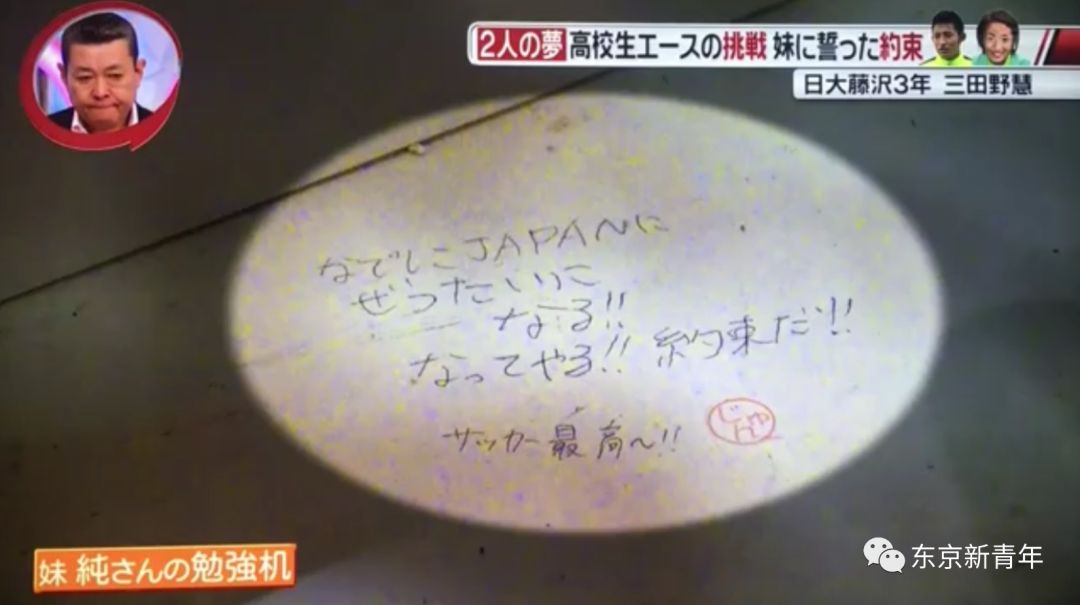 2人の夢 高校生エースの挑戦 妹に誓った約束
日大藤沢3年 三田野慧
なでしこJAPANに
ぜったいに
なる!!
なってやる!! 約束だ!!
サッカー最高~!!
じゅん
妹 純さんの勉強机
东京新青年